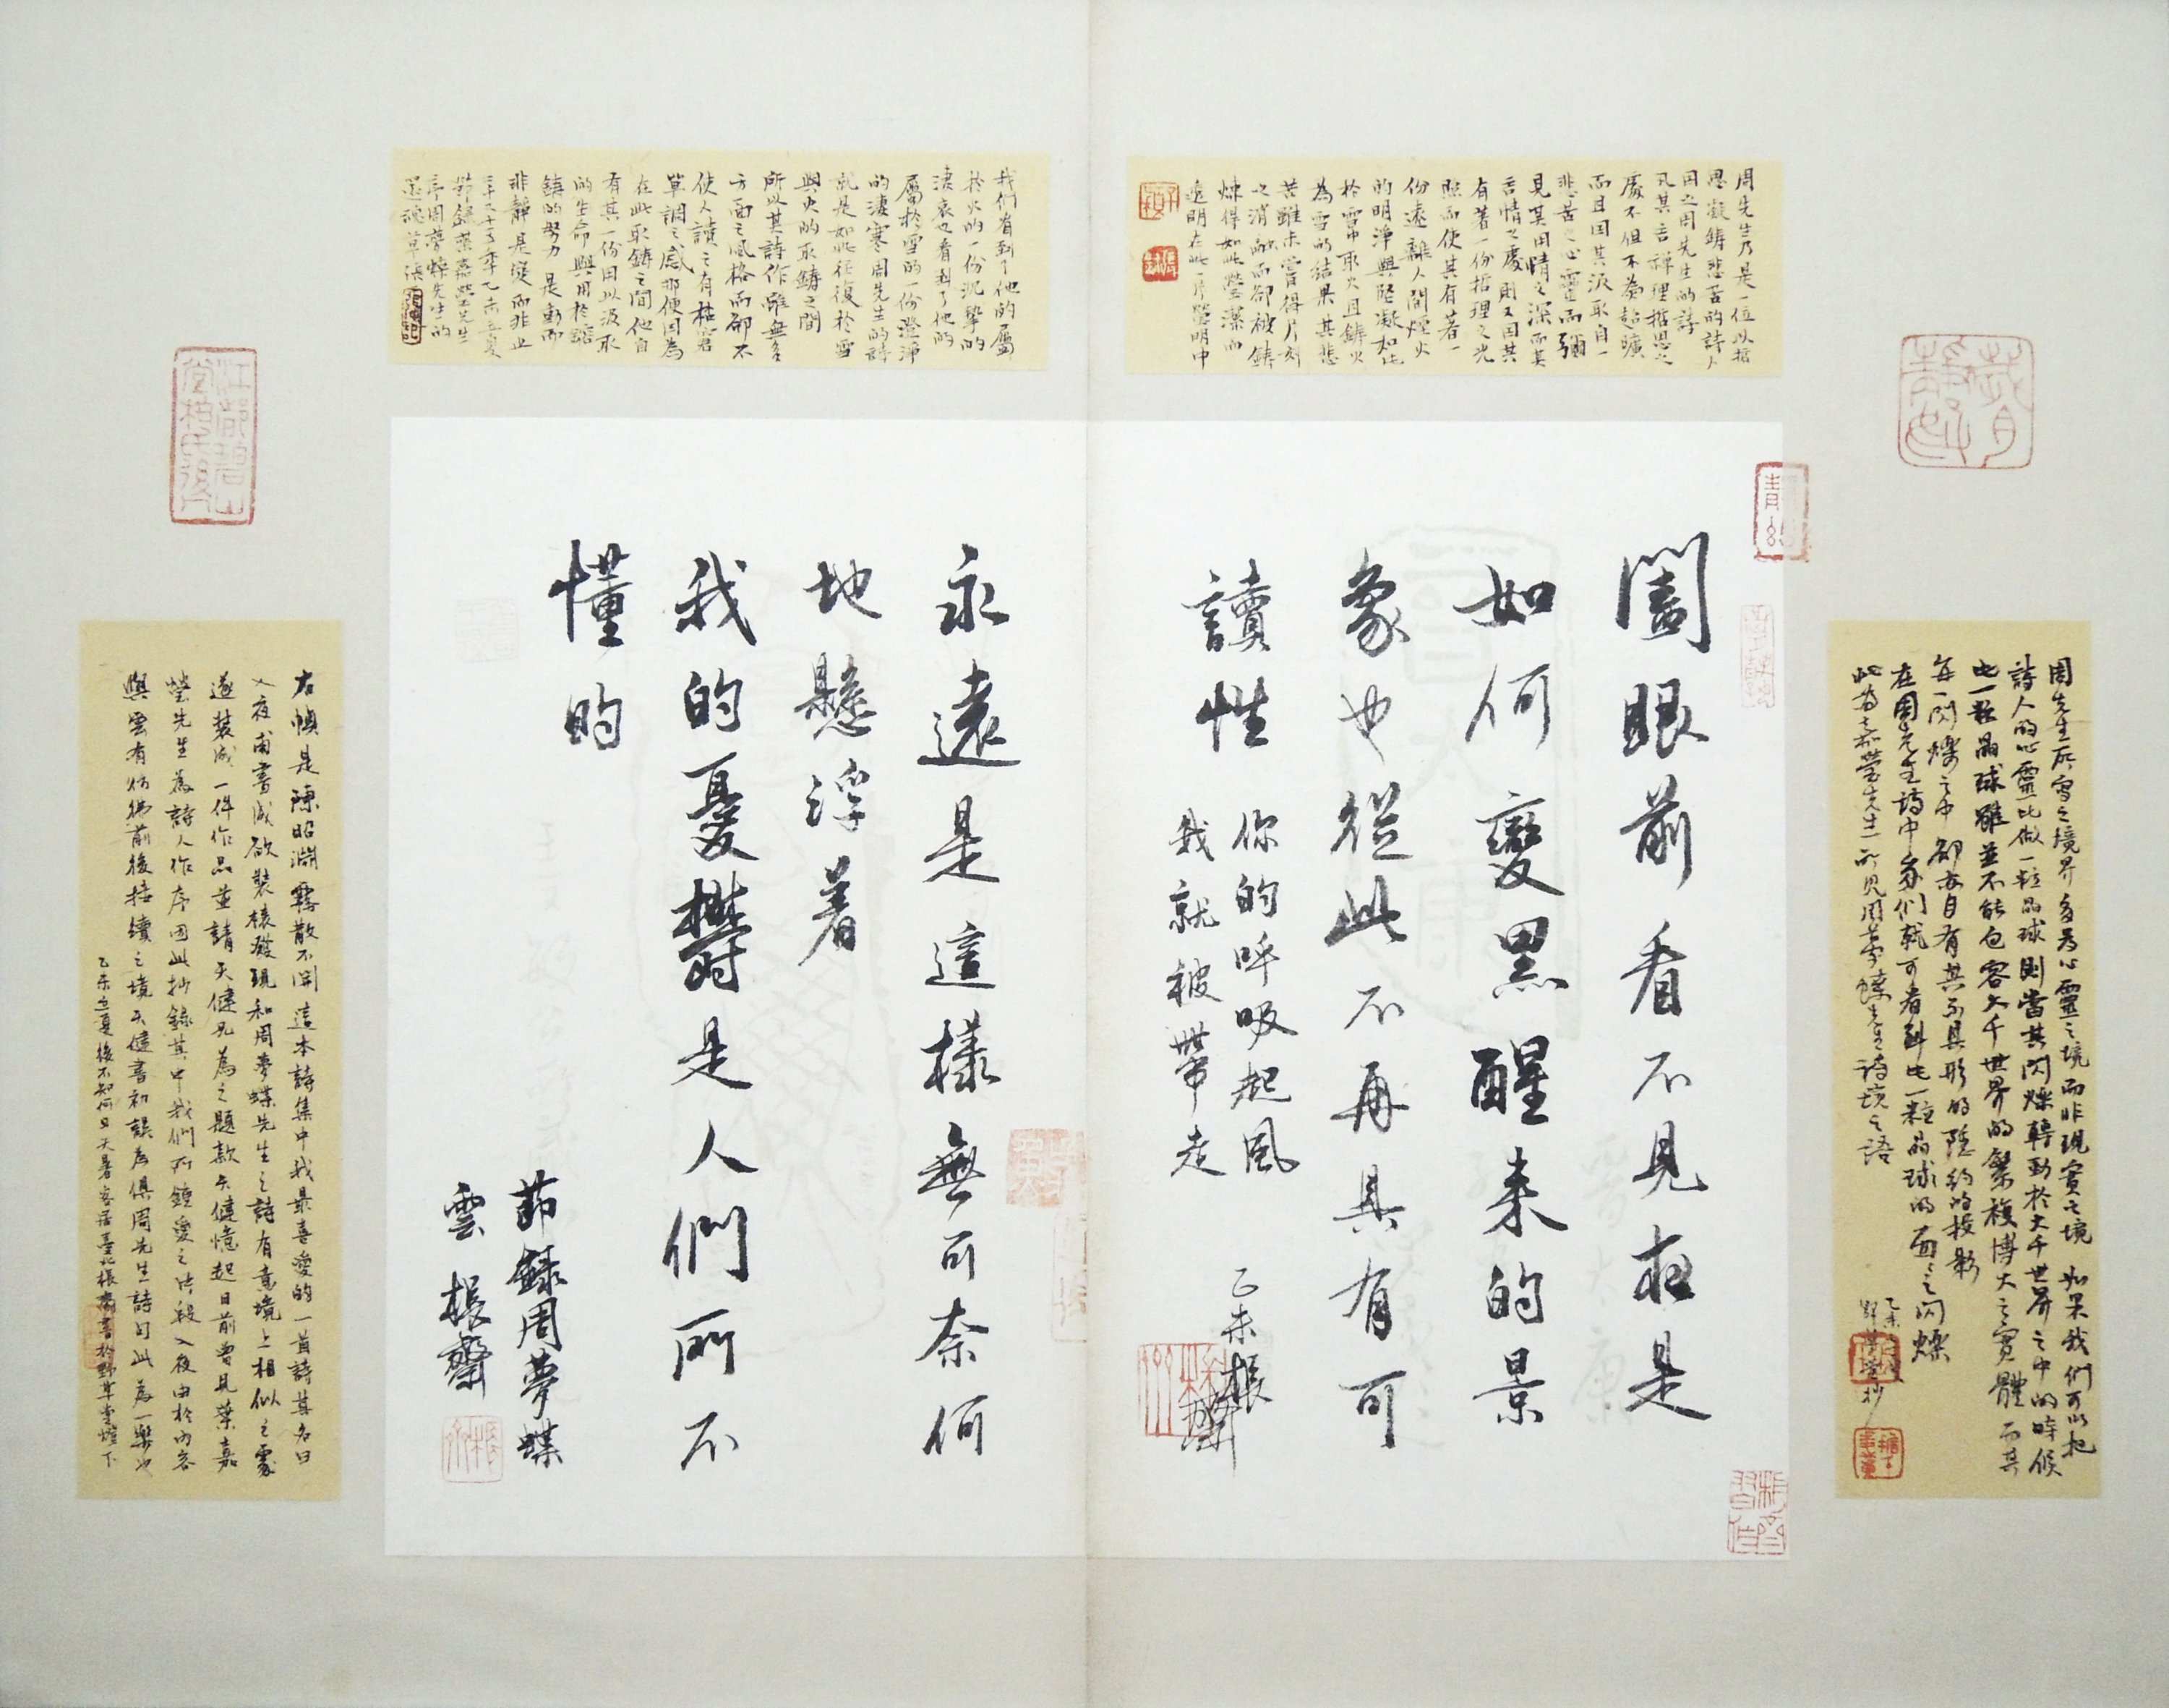 闔眼前看不見夜是
如何變黑醒来的景
象也從此不再具有可
讀性
你的呼吸起風
我就被帶走
乙未 振
永遠是這樣無可奈何
地懸浮着
我的憂鬱是人們所不
懂的
節錄周夢蝶
雲 振齋
周先生乃是一位以哲
思凝鑄悲苦的詩人
因之周先生的詩
凡其言禪理哲思之
處不但不為超曠
而且因其汲取自一
悲苦之心靈而彌
見其用情之深而其
言情之處則又因其
有著一份哲理之光
照而使其有著一
份遠離人間煙火
的明淨與堅凝如此
於雪中取火且鑄火
為雪的結果其悲
苦雖未嘗得片刻
之消融而卻被鑄
煉得如此瑩潔而
透明在此一片瑩明中
我們看到了他的屬
於火的一份沉摯的
淒哀也看到了他的
屬於雪的一份澄淨
的淒寒周先生的詩
就是如此往復於雪
與火的取鑄之間
所以其詩作雖無多
方面之風格而卻不
使人讀之有枯窘
單調之感那便因為
在此取鑄之間他自
有其一份用以汲取
的生命與用於鎔
鑄的努力 是動而
非靜是變而非止
節錄葉嘉瑩先生
序周夢蝶先生的
還魂草
周先生所寫之境界多為心靈之境而非現實之境 如果我們可以把
詩人的心靈比做一粒晶球則當其閃爍轉動於大千世界之中的時候
此一粒晶球雖並不能包容大千世界的繁複博大之實體 而其
每一閃爍之中 卻亦自有其不具形的隱約的投影
在周先生詩中我們就可看到此一粒晶球的面面之閃爍
此為嘉瑩先生所見周夢蝶先生詩境之語
右幀是陳昭淵霧散不開這本詩集中我最喜愛的一首詩其名曰
入夜甫書成欲裝裱發現和周夢蝶先生之詩有意境上相似之處
遂裝成一件作品並請天健兄為之題款天健憶起日前曾見葉嘉
瑩先生為詩人作序因此抄錄其中我們所鍾愛之片段入夜由於內容
與雲有彷彿前後接續之境天健書初誤為俱周先生詩句此為一樂也
乙未立夏後不知何日天暑客居臺北振齋書於野草堂燈下